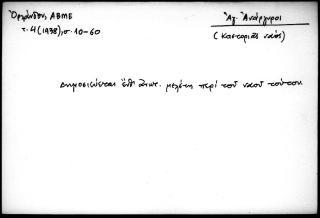 Ὀρλάνδου, ΑΒΜΕ
τ. 4 (1938), σ. 10-60
Ἅγ. Ἀνάργυροι
(Καστοριᾶς ναός)
Δημοσιεύεται μελέτη περὶ τοῦ ναοῦ τούτου.